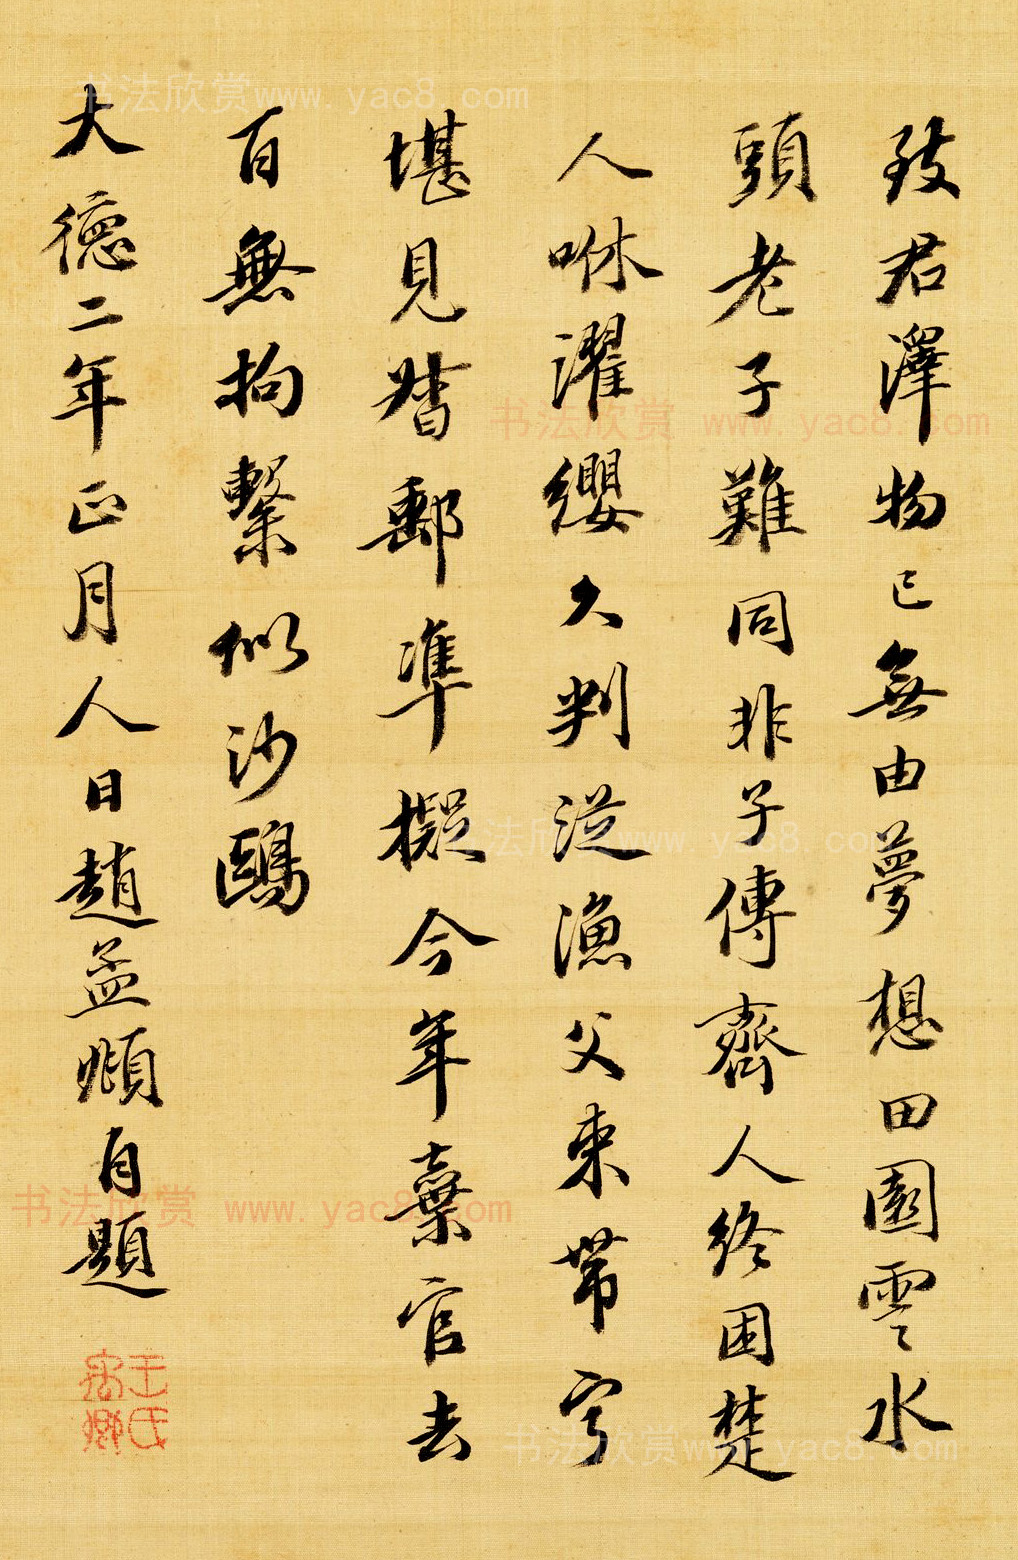 致君澤物已無由夢想田園雲水
頭老子難同非子傳齊人終困楚
人咻濯纓久判從漁父束帶寧
堪見督郵準擬今年棄官去
百無拘繫似沙鷗
大德二年正月人日趙孟頫自題
王氏
禹卿
书法欣赏www.yac8.com
书法欣赏 www.yac8.com
书法欣赏www.yac8.com
书法欣赏 www.yac8.com
书法欣赏www.yac8.com